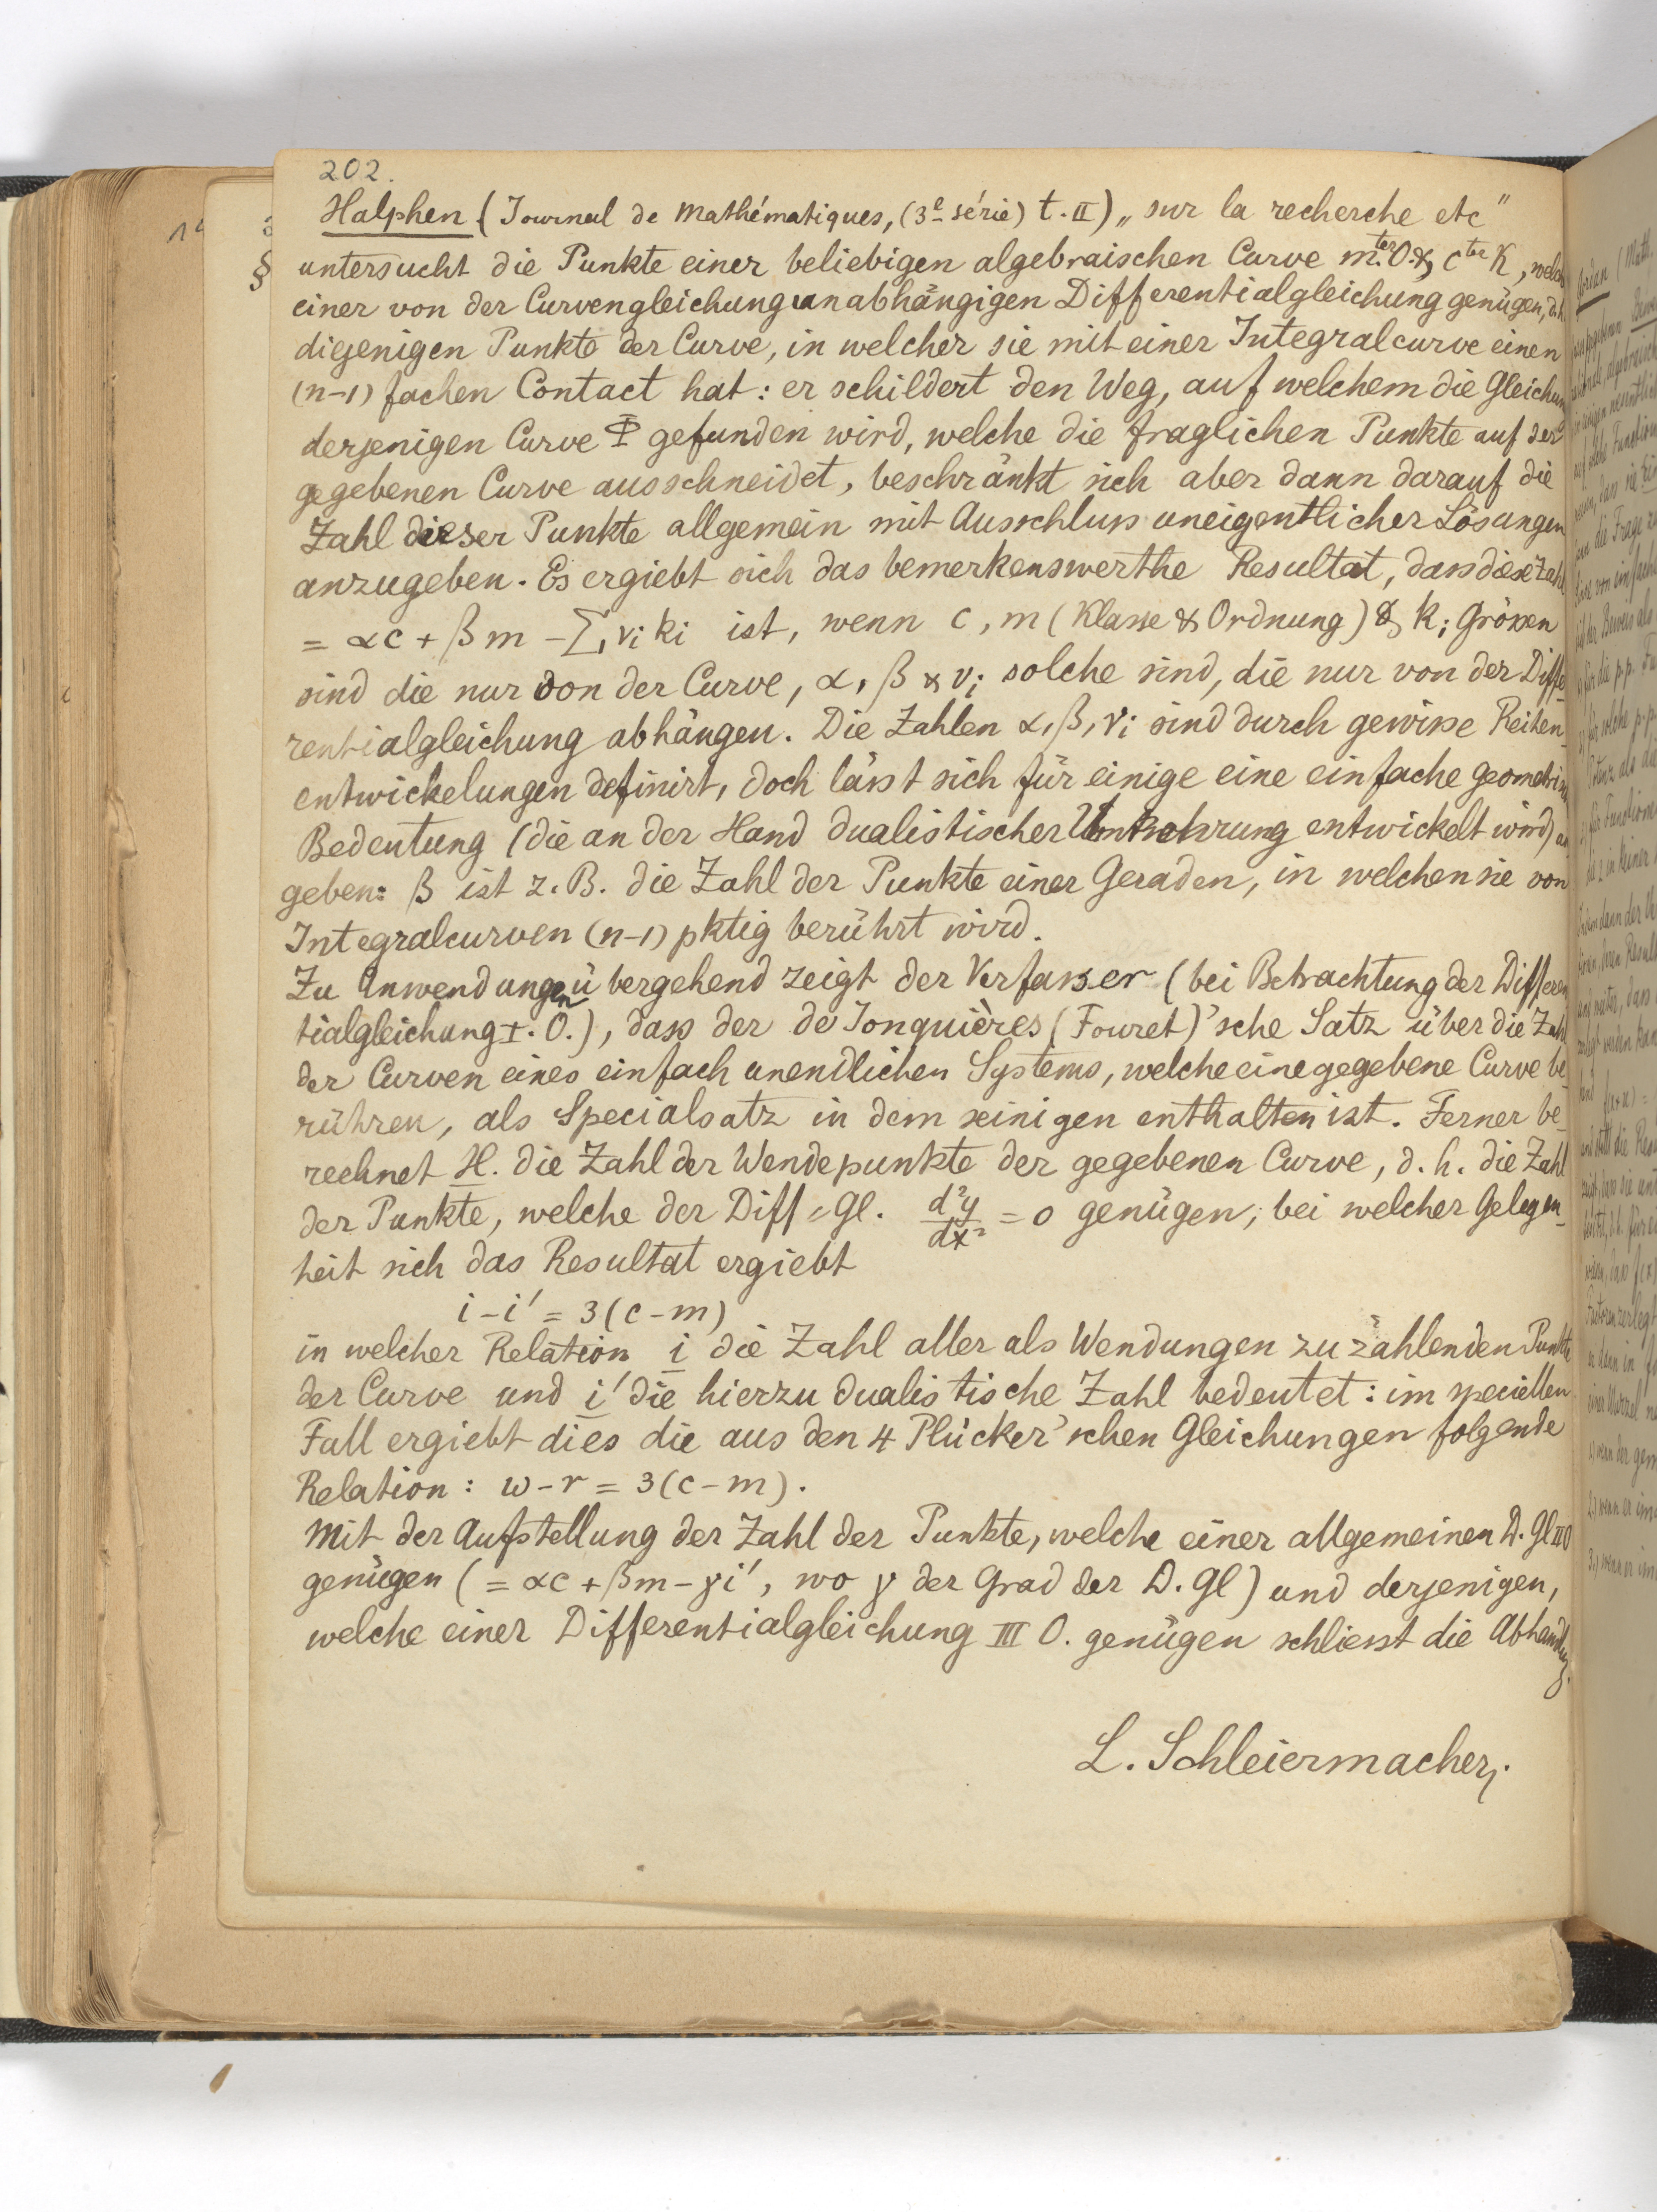 202.
Halphen (Journal de Mathématiques, (3e série) t. II) „sur la recherche etc"
untersucht die Punkte einer beliebigen algebraischen Curve m.ter O. & cter K, welche
einer von der Curvengleichung unabhängigen Differentialgleichung genügen, d.h.
diejenigen Punkte der Curve, in welcher sie mit einer Integralcurve einen
(n-1) fachen Contact hat: er schildert den Weg, auf welchem die Gleichung
derjenigen Curve Φ gefunden wird, welche die fraglichen Punkte auf der
gegebenen Curve ausschneidet, beschränkt sich aber dann darauf die
Zahl dieser Punkte allgemein mit Ausschluss uneigentlicher Lösungen
anzugeben. Es ergiebt sich das bemerkenswerthe Resultat, dass diese Zahl
= αc + βm - Σ νi ki ist, wenn c, m (Klasse & Ordnung) & ki Grössen
sind die nur von der Curve, α, β & νi solche sind, die nur von der Diffe
rentialgleichung abhängen. Die Zahlen α, β, νi sind durch gewisse Reihen-
entwickelungen definirt, doch lässt sich für einige eine einfache geometrische
Bedeutung (die an der Hand dualistischer Umkehrung entwickelt wird) an
geben: β ist z. B. die Zahl der Punkte einer Geraden, in welchen sie von
Integralcurven (n-1) pktig berührt wird.
Zu Anwendungen übergehend zeigt der Verfasser (bei Betrachtung der Differen
tialgleichung I. O.), dass der de Jonquières (Fouret)'sche Satz über die Zahl
der Curven eines einfach unendlichen Systems, welche eine gegebene Curve be-
rühren, als Specialsatz in dem seinigen enthalten ist. Ferner be-
rechnet H. die Zahl der Wendepunkte der gegebenen Curve, d. h. die Zahl
der Punkte, welche der Diff=Gl. d²y/dx² = 0 genügen, bei welcher Gelegen-
heit sich das Resultat ergiebt
i - i' = 3(c - m)
in welcher Relation i die Zahl aller als Wendungen zu zählenden Punkte
der Curve und i' die hierzu dualistische Zahl bedeutet: im speciellen
Fall ergiebt dies die aus den 4 Plücker'schen Gleichungen folgende
Relation: w - r = 3(c - m).
Mit der Aufstellung der Zahl der Punkte, welche einer allgemeinen D. Gl II O
genügen (= αc + βm - γi', wo γ der Grad der D. Gl) und derjenigen,
welche einer Differentialgleichung III O. genügen schliesst die Abhandlg.
L. Schleiermacher.